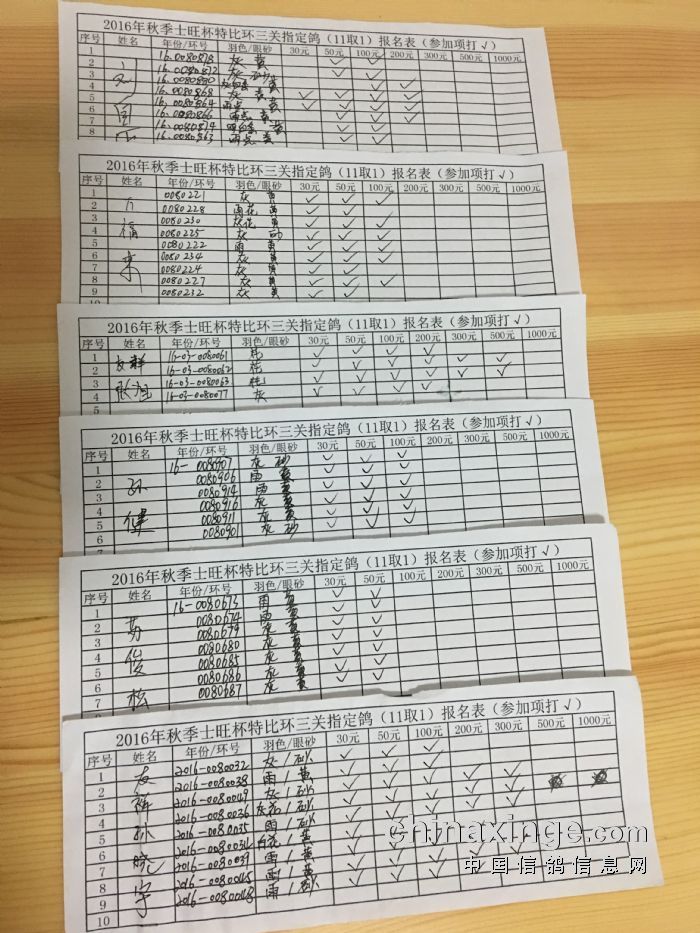 2016年秋季士旺杯特比环三关指定鸽（11取1）报名表（参加项打√）
序号 姓名 年份/环号 羽色/眼砂 30元 50元 100元 200元 300元 500元 1000元
1 16-0080878 灰 黄 √ √
2 16-0080872 灰 砂 √ √
3 16-0080880 黄 √ √ √
4 16-0080868 灰 黄 √ √ √ √
5 16-0080864 雨点 黄 √ √ √ √
6 16-0080866 雨点 黄 √ √ √ √
7 16-0080874 黄 √ √
8 16-0080863 雨点 黄 √ √
2016年秋季士旺杯特比环三关指定鸽（11取1）报名表（参加项打√）
序号 姓名 年份/环号 羽色/眼砂 30元 50元 100元 200元 300元 500元 1000元
1 0080221 灰 黄 √ √ √
2 0080228 雨花 黄 √ √
3 福 0080230 灰花 黄 √ √
4 0080225 灰 √ √
5 来 0080222 雨 黄 √ √
6 0080234 灰 黄 √ √
7 0080224 灰 黄 √ √
8 0080227 灰 黄 √ √ √
9 0080232 灰 黄 √ √
10
2016年秋季士旺杯特比环三关指定鸽（11取1）报名表（参加项打√）
序号 姓名 年份/环号 羽色/眼砂 30元 50元 100元 200元 300元 500元 1000元
1 友群 16-03-0080061 √ √ √ √
2 16-03-0080062 √ √ √ √ √ √
3 张旭 16-03-0080063 √ √ √ √ √ √
4 16-03-0080077 灰 √ √ √ √
5
2016年秋季士旺杯特比环三关指定鸽（11取1）报名表（参加项打√）
序号 姓名 年份/环号 羽色/眼砂 30元 50元 100元 200元 300元 500元 1000元
1 孙健 16-0080907 灰 砂 √ √ √
2 0080906 雨 黄 √ √ √
3 0080914 雨 黄 √ √ √
4 0080916 灰 黄 √ √ √
5 0080911 灰 黄 √ √ √
0080901 灰 砂 √ √ √
2016年秋季士旺杯特比环三关指定鸽（11取1）报名表（参加项打√）
序号 姓名 年份/环号 羽色/眼砂 30元 50元 100元 200元 300元 500元 1000元
1 苏俊松 16-0080673 雨 黄 √ √
2 0080674 雨 黄 √ √
3 0080679 灰 黄 √ √
4 0080680 灰 黄 √ √
5 0080685 灰 黄 √ √
6 0080686 灰 黄 √ √
7 0080687 灰 黄 √ √
2016年秋季士旺杯特比环三关指定鸽（11取1）报名表（参加项打√）
序号 姓名 年份/环号 羽色/眼砂 30元 50元 100元 200元 300元 500元 1000元
1 友 2016-0080032 灰/砂 √ √ √
2 2016-0080038 雨/黄 √ √ √
3 2016-0080049 灰/砂 √ √ √ √ √
4 孙 2016-0080036 灰花/砂 √ √ √ √ √
5 2016-0080035 雨/砂 √ √ √ √ √
6 晓 2016-0080034 白花/黄 √ √ √
7 2016-0080039 雨/黄 √ √ √
8 宇 2016-0080045 雨/黄
9 2016-0080048 雨/砂
10
chinaxinge.com
中国信鸽信息网